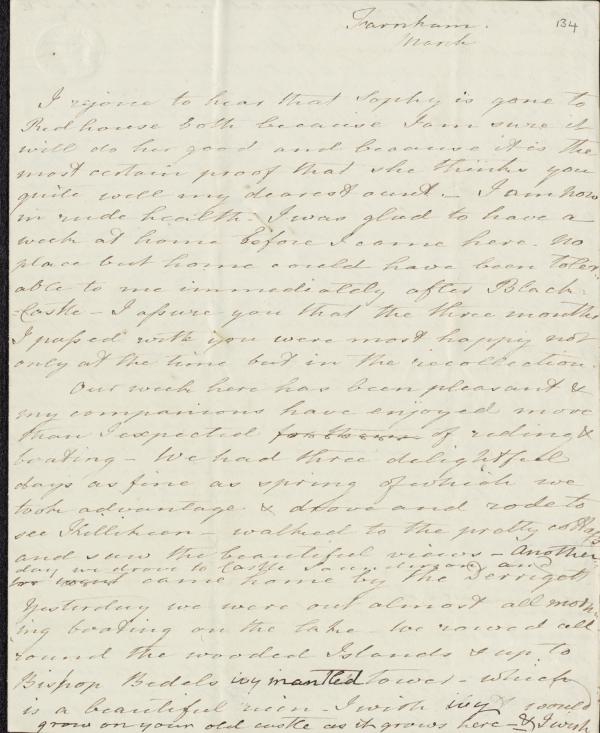 Farnham.
134
March
I rejoice to hear that Sophy is gone to
Redhouse both because I am sure it
will do her good and because it is the
most certain proof that she thinks you
quite well my dearest aunt. – I am now
in rude health. I was glad to have a
week at home before I came here. No
place but home could have been toler
able to me immediately after Black-
-Castle – I assure you that the three months
I passed with you were most happy not
only at the time but in the recollection.
Our week here has been pleasant &
my companions have enjoyed more
than I expected of riding &
boating – We had three delightful
days as fine as spring of which we
took advantage & drove and rode to
see Killikeen – walked to the pretty cottage
and saw the beautiful views – Another
day we drove to Castle Saunderson and
came home by the
Yesterday we were out almost all morn-
ing boating on the lake – We rowed all
round the wooded Islands & up to
Bishop Bedels ivy mantled tower – which
is a beautiful ruin – I wish ivy would
grow on your old castle as it grows here – & I wish